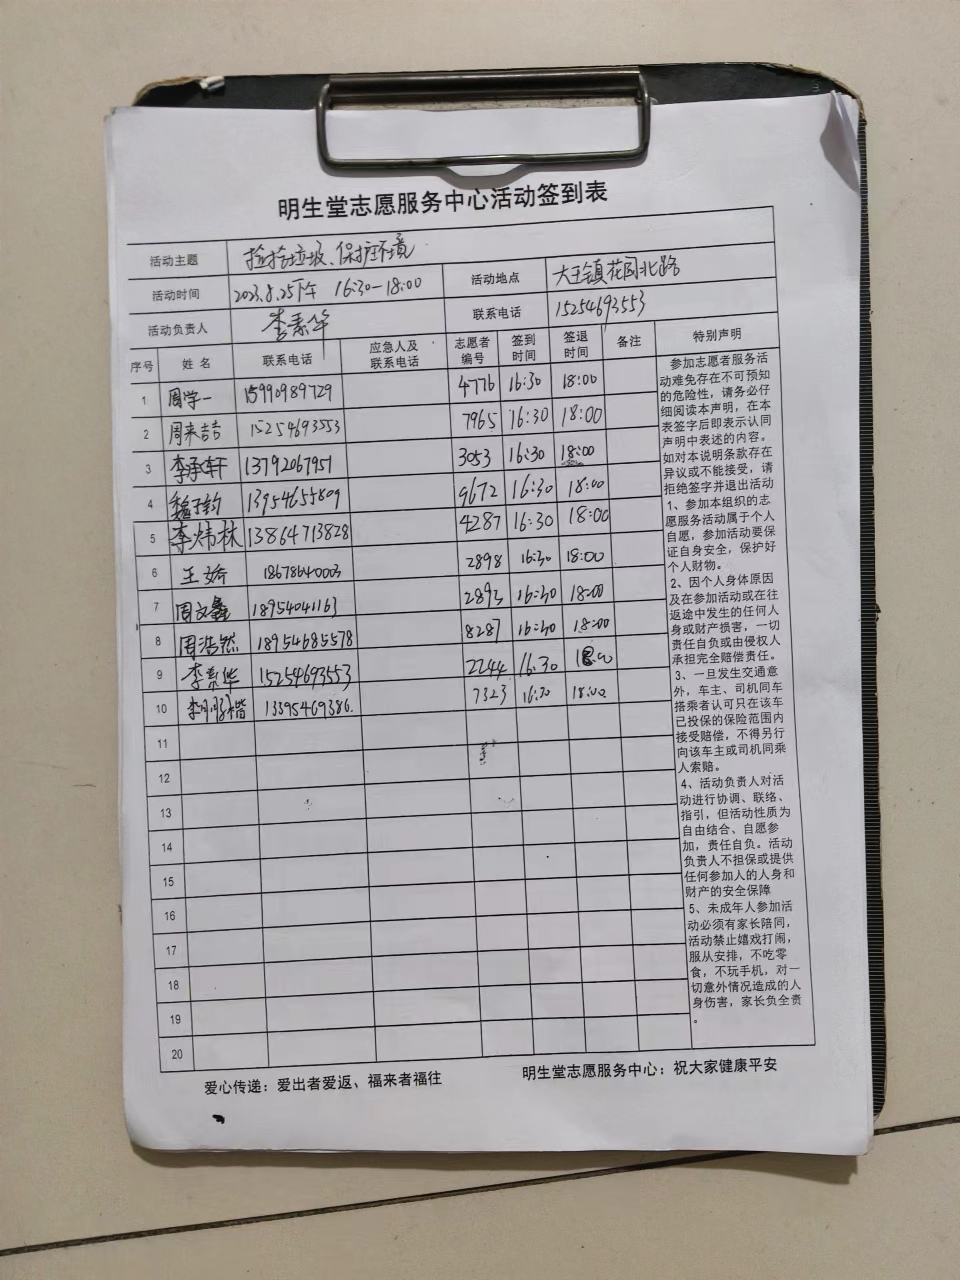 明生堂志愿服务中心活动签到表
活动主题 捡拾垃圾、保护环境
活动时间 2023.8.25下午 16:30-18:00 活动地点 大王镇花园北路
活动负责人 李素华 联系电话 15254693553
序号 姓名 联系电话 应急人及联系电话 志愿者编号 签到时间 签退时间 备注 特别声明
1 周学一 15990989729 4776 16:30 18:00
2 周来吉 15254693553 7965 16:30 18:00
3 李承轩 13792067951 3053 16:30 18:00
4 魏子钧 13954655809 9672 16:30 18:00
5 李炜林 13864713828 4287 16:30 18:00
6 王娇 18678640003 2898 16:30 18:00
7 周文鑫 18954041163 2893 16:30 18:00
8 周浩然 18954685578 8287 16:30 18:00
9 李素华 15254693553 2244 16:30 18:00
10 13395469386. 7323 16:30 18:00
11
12
13
14
15
16
17
18
19
20
参加志愿者服务活
动难免存在不可预知
的危险性，请务必仔
细阅读本声明，在本
表签字后即表示认同
声明中表述的内容。
如对本说明条款存在
异议或不能接受，请
拒绝签字并退出活动
1、参加本组织的志
愿服务活动属于个人
自愿，参加活动要保
证自身安全，保护好
个人财物。
2、因个人身体原因
及在参加活动或在往
返途中发生的任何人
身或财产损害，一切
责任自负或由侵权人
承担完全赔偿责任。
3、一旦发生交通意
外，车主、司机同车
搭乘者认可只在该车
已投保的保险范围内
接受赔偿，不得另行
向该车主或司机同乘
人索赔。
4、活动负责人对活
动进行协调、联络、
指引，但活动性质为
自由结合、自愿参
加，责任自负。活动
负责人不担保或提供
任何参加人的人身和
财产的安全保障
5、未成年人参加活
动必须有家长陪同，
活动禁止嬉戏打闹，
服从安排，不吃零
食，不玩手机，对一
切意外情况造成的人
身伤害，家长负全责
。
爱心传递：爱出者爱返、福来者福往 明生堂志愿服务中心：祝大家健康平安